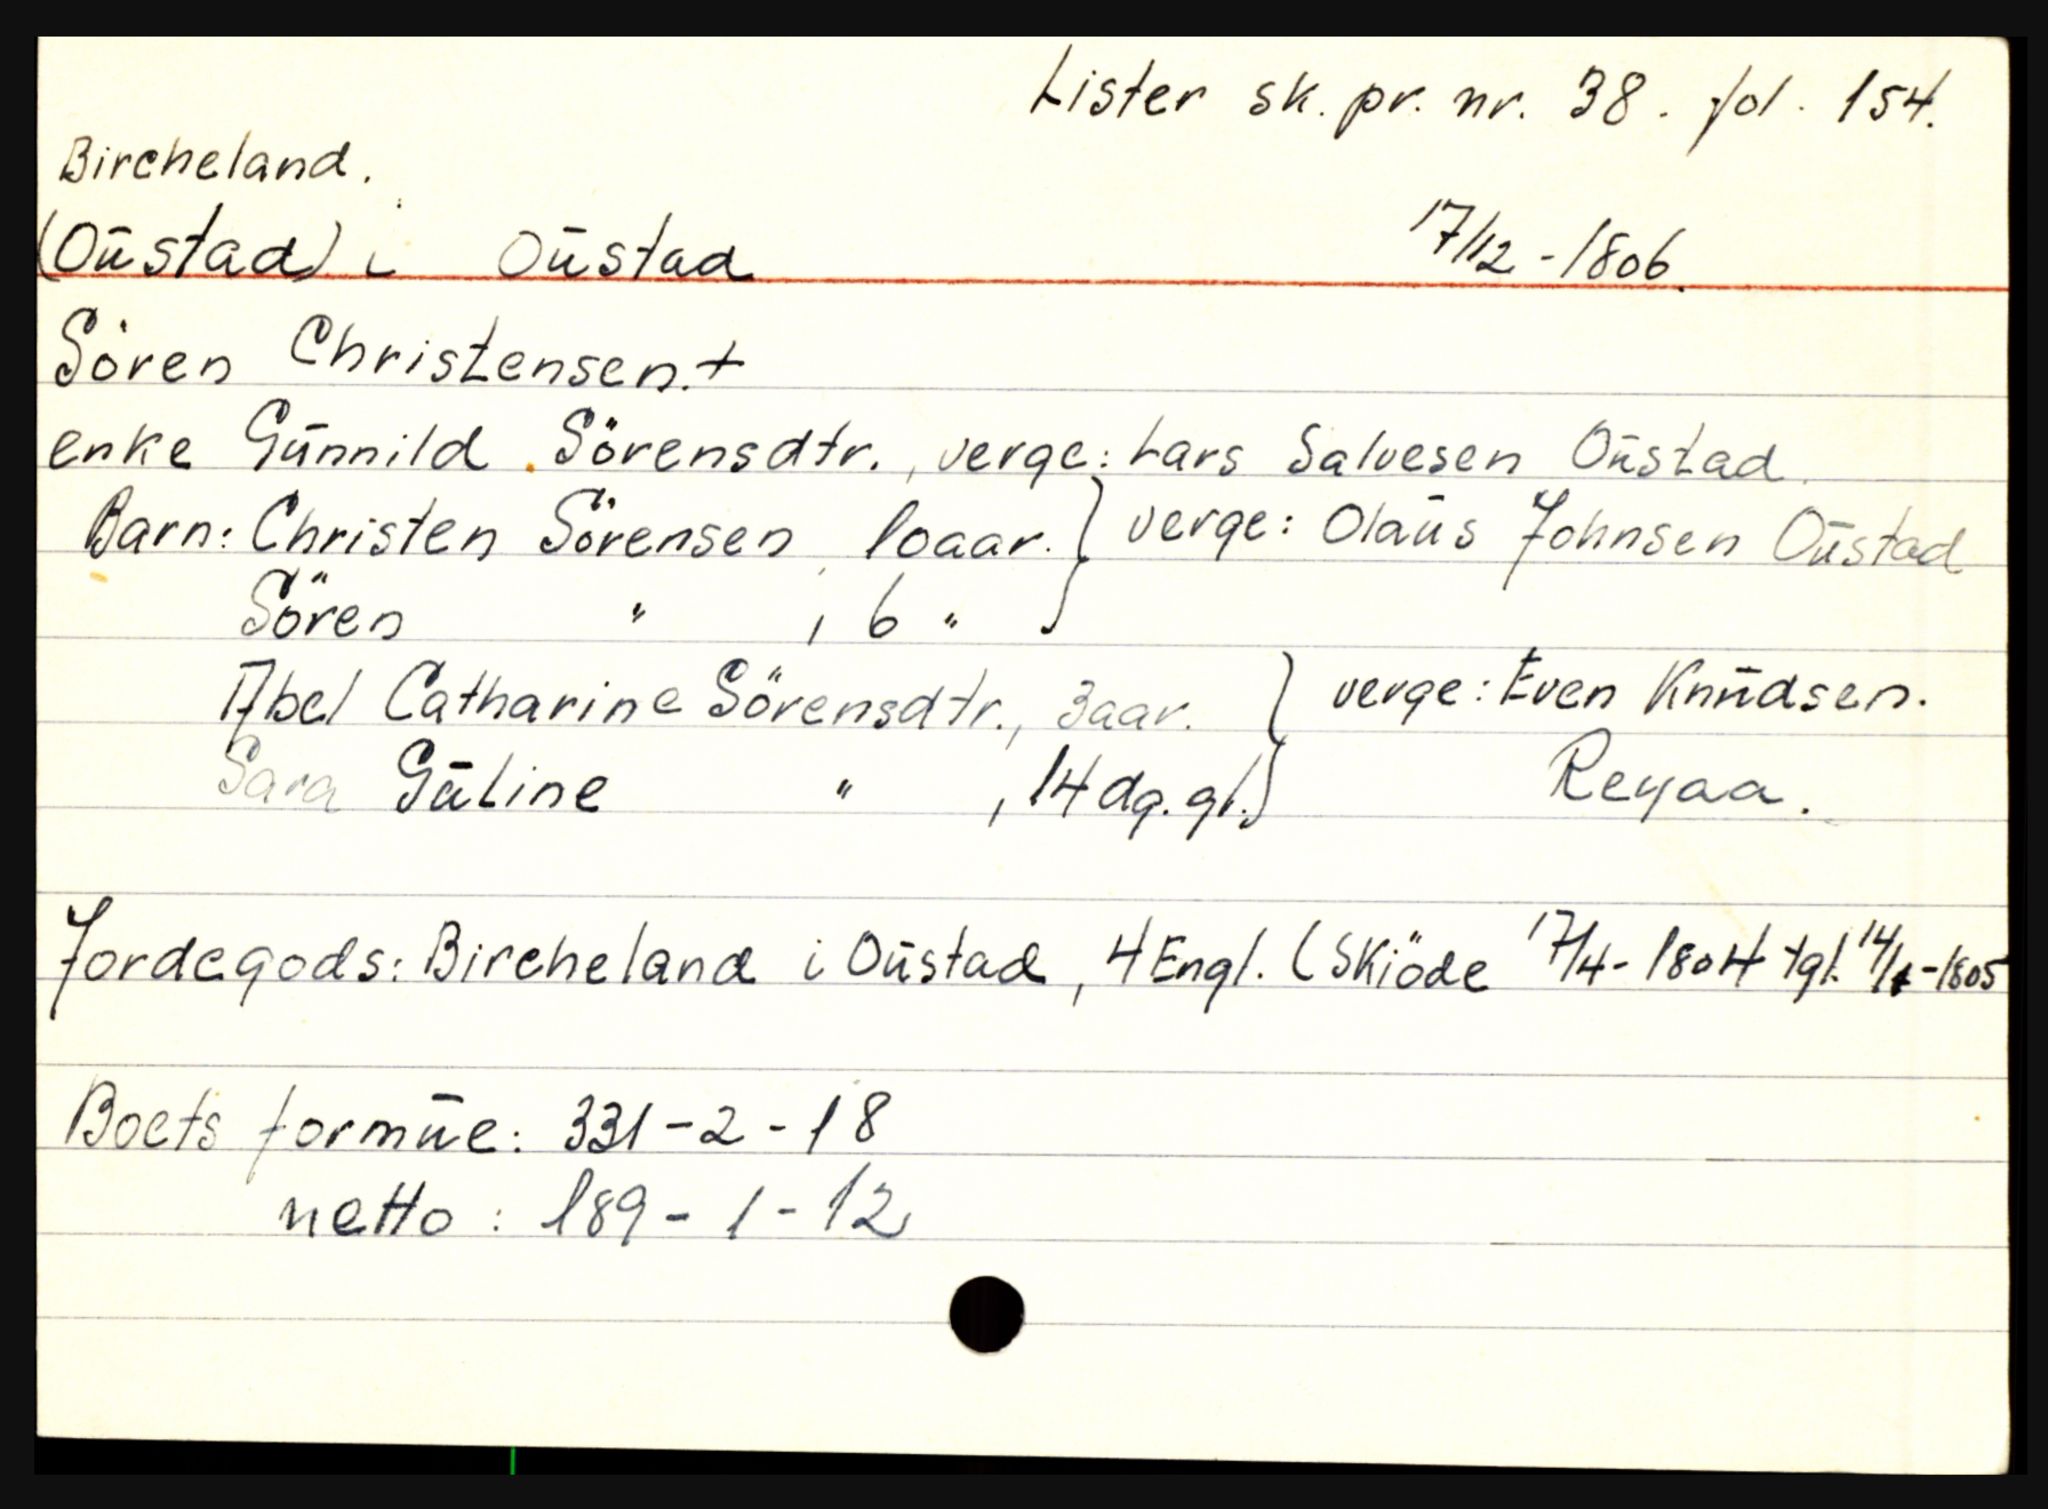 Lister sk. pr. nr. 38. fol. 154.
Bircheland.
(Oūstad) i Oūstad 17/12 - 1806.
Sören Christensen. +
enke Gūnnild Sörensdtr., verge: Lars Salvesen Oūstad.
Barn: Christen Sörensen, 10 aar. } verge: Olaūs Johnsen Oūstad
Sören " , 6 "
Abel Catharine Sörensdtr., 3 aar. } verge: Even Knūdsen.
Sara Gūline " , 14 dg. gl. } Reyaa.
Jordegods: Bircheland i Oūstad, 4 Engl. (Skiöde 17/4 - 1804 tgl. 14/1 - 1805
Boets formūe: 331 - 2 - 18
netto: 189 - 1 - 12